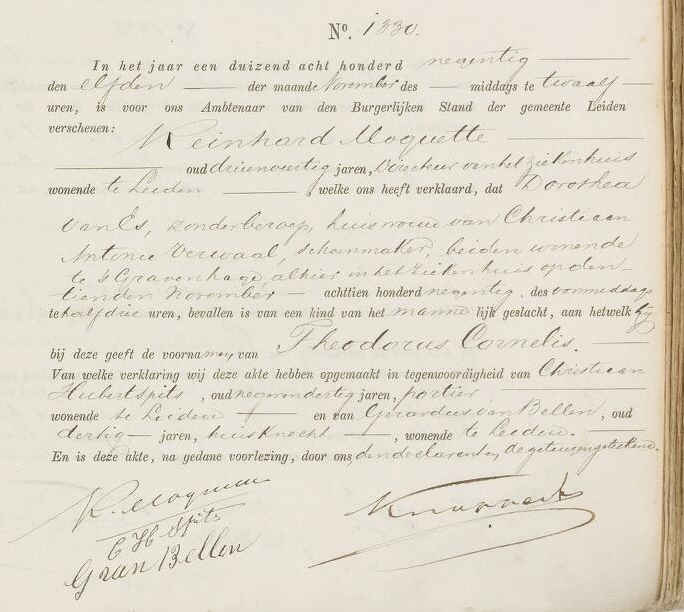 No. 1330.
In het jaar een duizend acht honderd negentig
den elfden der maand November des middags te twaalf
uren, is voor ons Ambtenaar van den Burgerlijken Stand der gemeente Leiden
verschenen: Reinhard Moquette
oud drieenveertig jaren, Directeur van het Ziekenhuis
wonende te Leiden, welke ons heeft verklaard, dat Dorothea
van Es, zonder beroep, huisvrouw van Christiaan
Antonie Verwaal, schoenmaker, beiden wonende
te 's Gravenhage, alhier in het Ziekenhuis op den
tienden November achttien honderd negentig, des voormiddags
te half drie uren, bevallen is van een kind van het mannelijk geslacht, aan hetwelk hij
bij deze geeft de voornamen van Theodorus Cornelis.
Van welke verklaring wij deze akte hebben opgemaakt in tegenwoordigheid van Christiaan
Hubert Spits, oud negenendertig jaren, portier
wonende te Leiden en van Gerardus van Bellen, oud
dertig jaren, huisknecht, wonende te Leiden.
En is deze akte, na gedane voorlezing, door ons, den declarant en de getuigen geteekend.
R. Moquette
C H Spits
G van Bellen